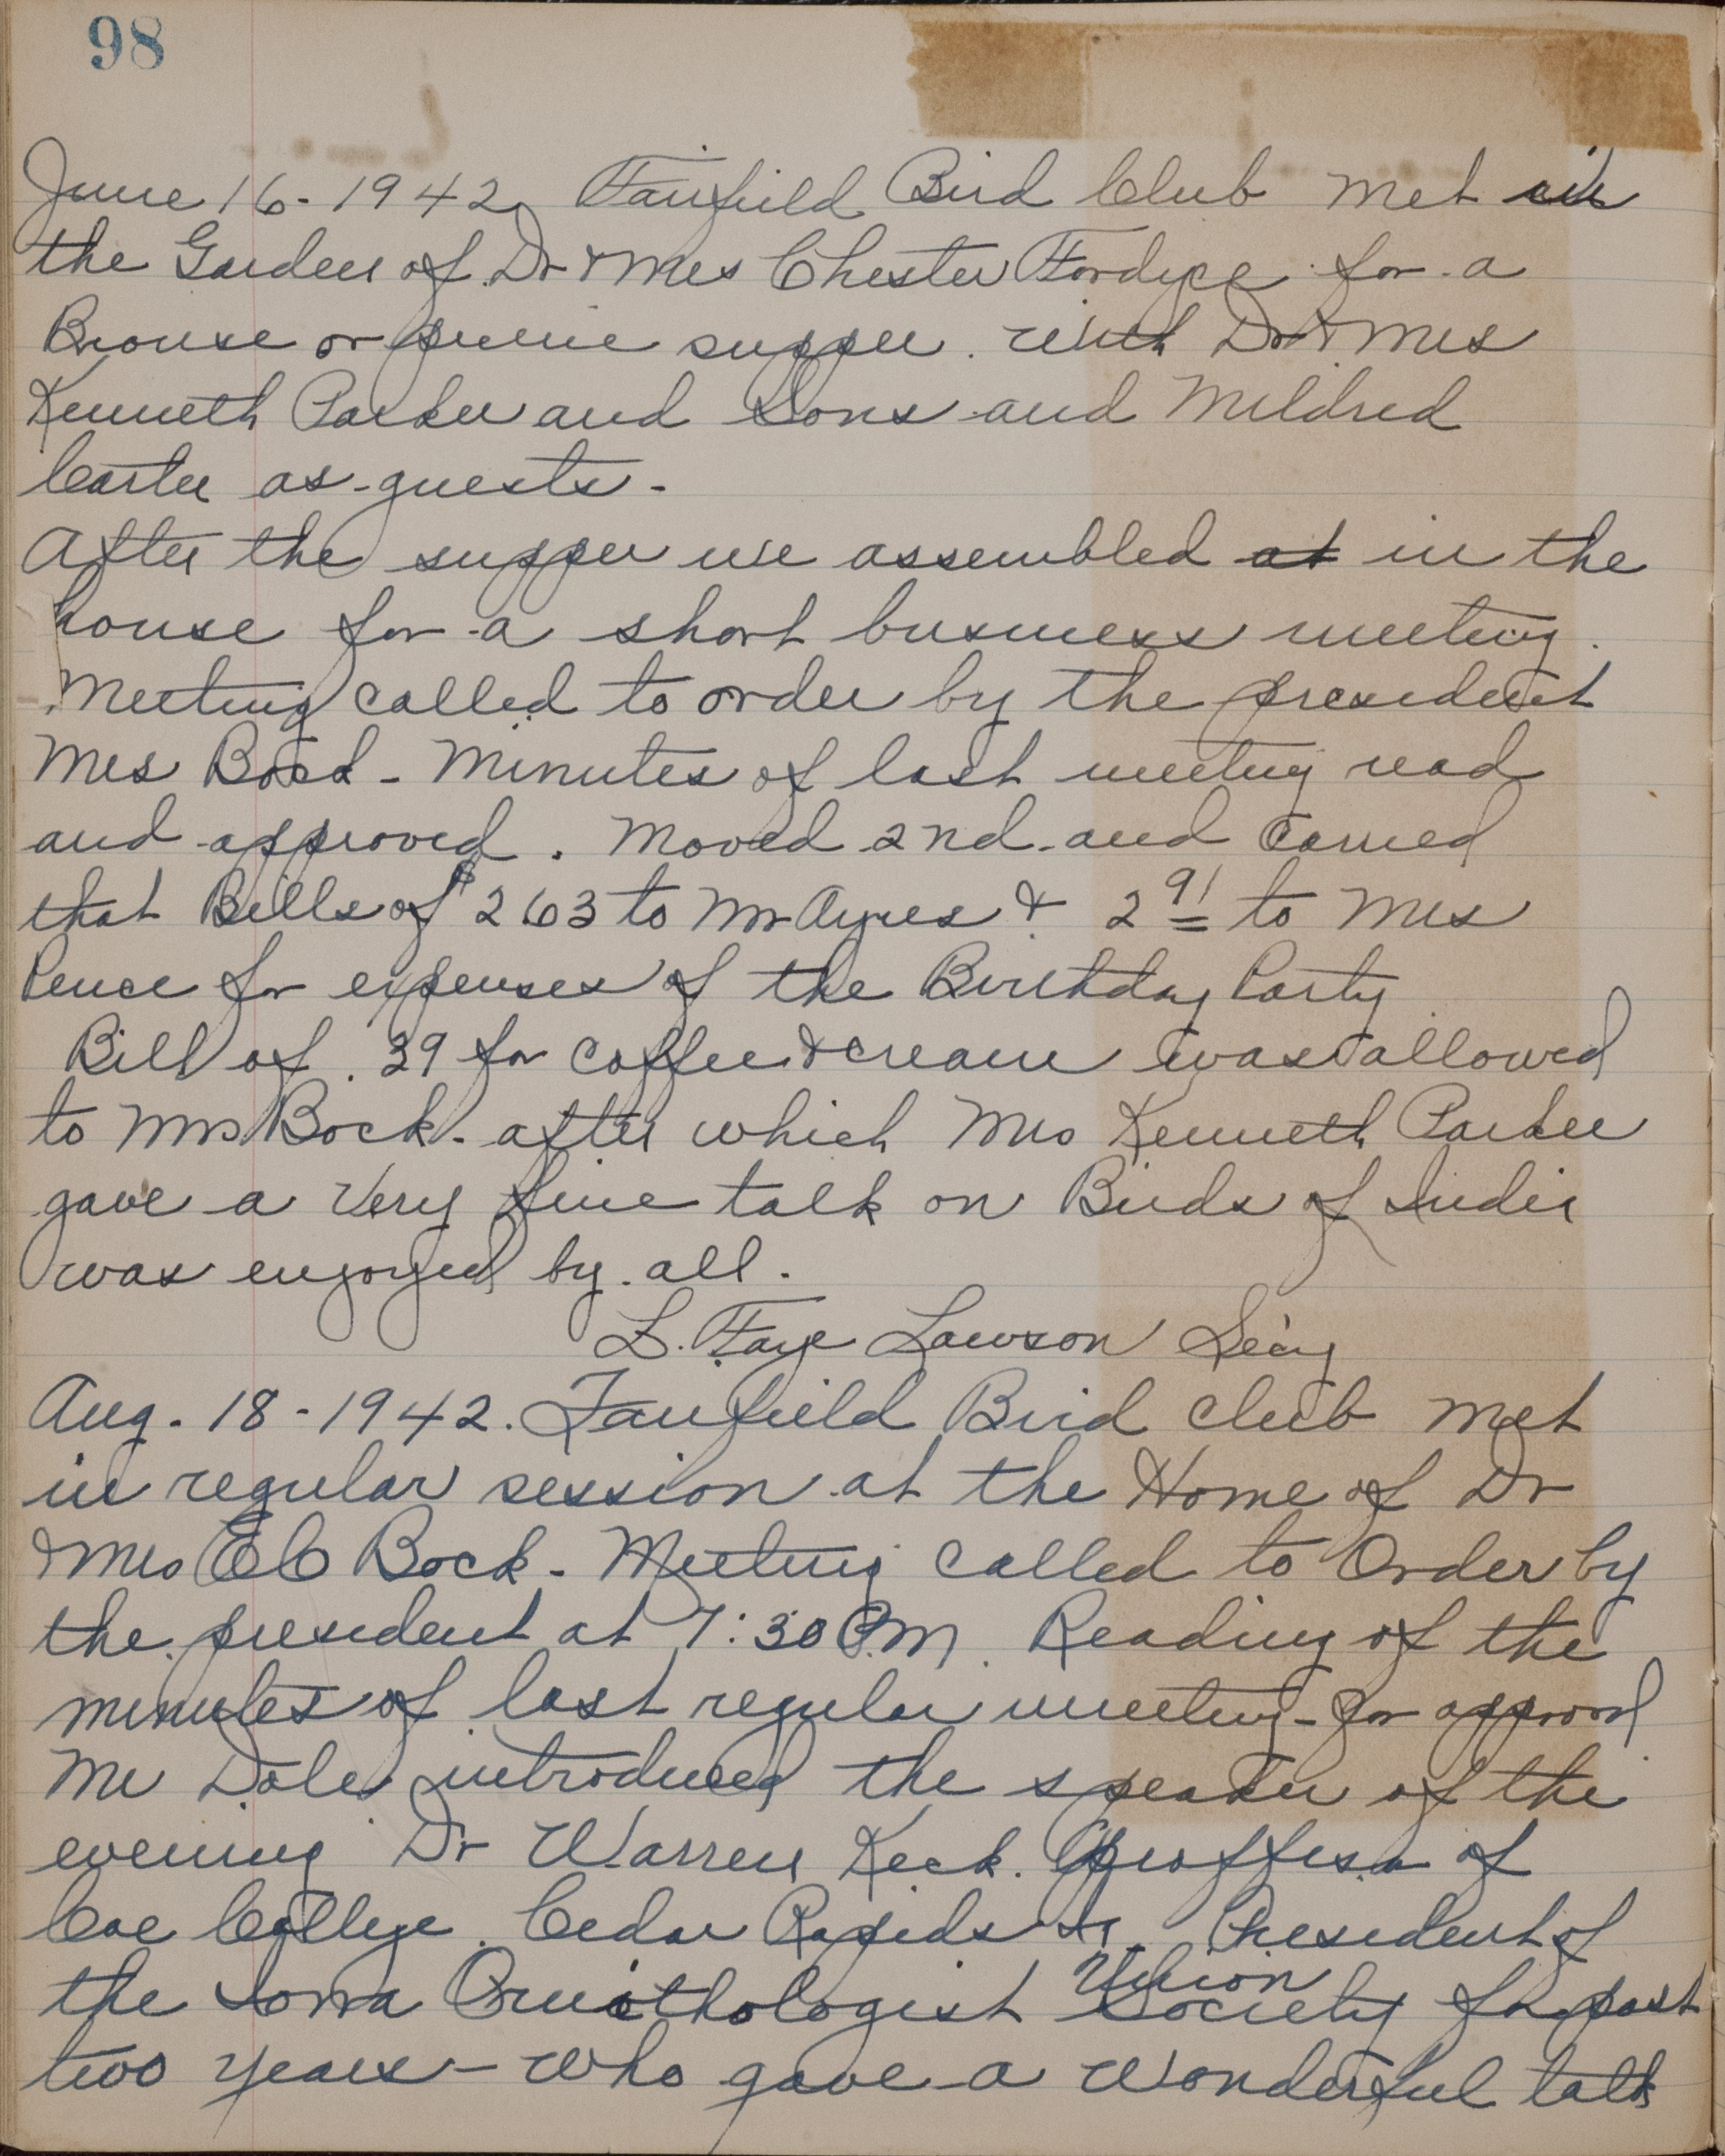 98
June 16 - 1942 Fairfield Bird Club met in
the Garden of Dr & Mrs Chester Fordyce for a
Brouse or picnic supper. with Dr & Mrs
Kenneth Parker and Sons and Mildred
Carter as guests -
After the supper we assembled at in the
house for a short business meeting.
Meeting called to order by the president
Mrs Bock - Minutes of last meeting read
and approved. Moved 2nd and Carried
that Bills of $263 to Mr Ayres & 2 91 to Mrs
Pence for expenses of the Birthday Party
Bill of .39 for coffee & cream was allowed
to Mrs Bock - after which Mrs Kenneth Parker
gave a Very fine talk on Birds of India
was enjoyed by all.
L. Faye Lawson Sec'y
Aug. 18 - 1942. Fairfield Bird club met
in regular session at the Home of Dr
& Mrs EC Bock - Meeting called to Order by
the president at 7:30 P.M. Reading of the
minutes of last regular meeting - for approval
Mr Dole introduced the speaker of the
evening Dr Warren Keck. Proffesor of
Coe College. Cedar Rapids Ia. President of
Union
the Iowa Ornithologist Society for past
two years - who gave a Wonderful talk